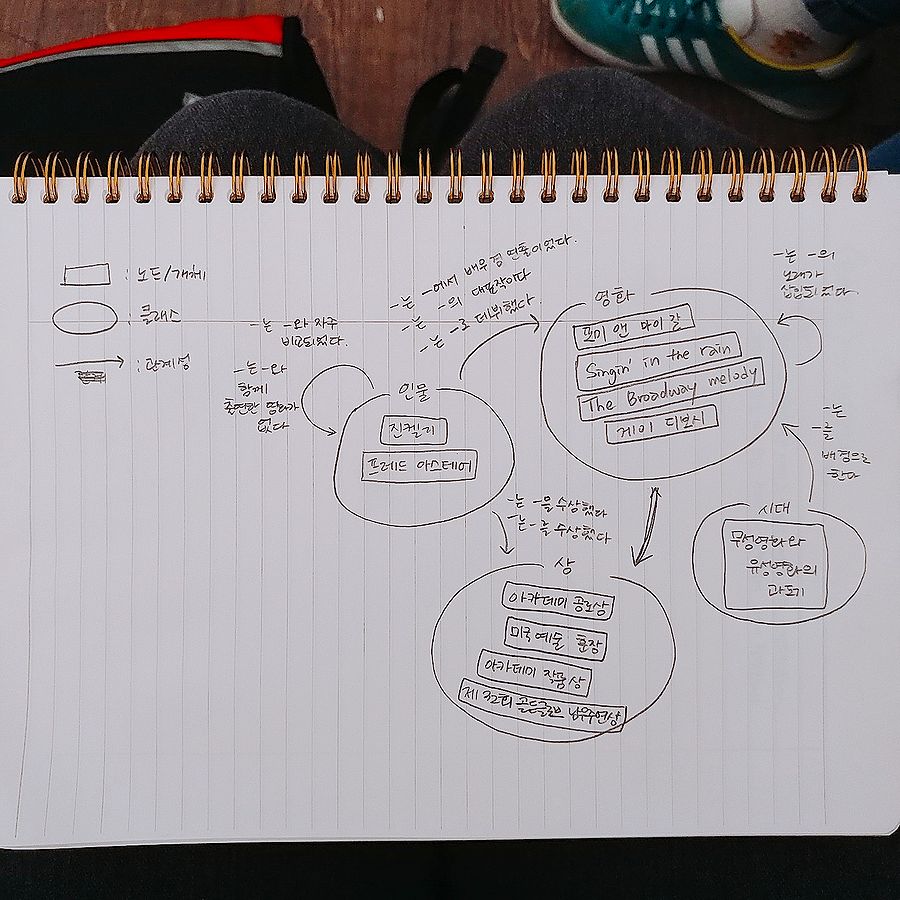 : 노드/개체
: 클래스
: 관계성
-는 -와 자주
비교되었다.
-는 -와
함께
출연한 영화가
없다
-는 -에서 배우 겸 연출이었다.
-는 -의 대표작이다
-는 -로 데뷔했다.
-는 -의
노래가
삽입되었다.
영화
포미 앤 마이 갈
Singin' in the rain
The Broadway melody
게이 디보시
인물
진켈리
프레드 아스테어
-는
-를
배경으로
한다
시대
무성영화와
유성영화의
과도기
-는 -을 수상했다
-는 -를 수상했다
상
아카데미 공로상
미국 예술 훈장
아카데미 작품상
제 32회 골든글로브 남우주연상